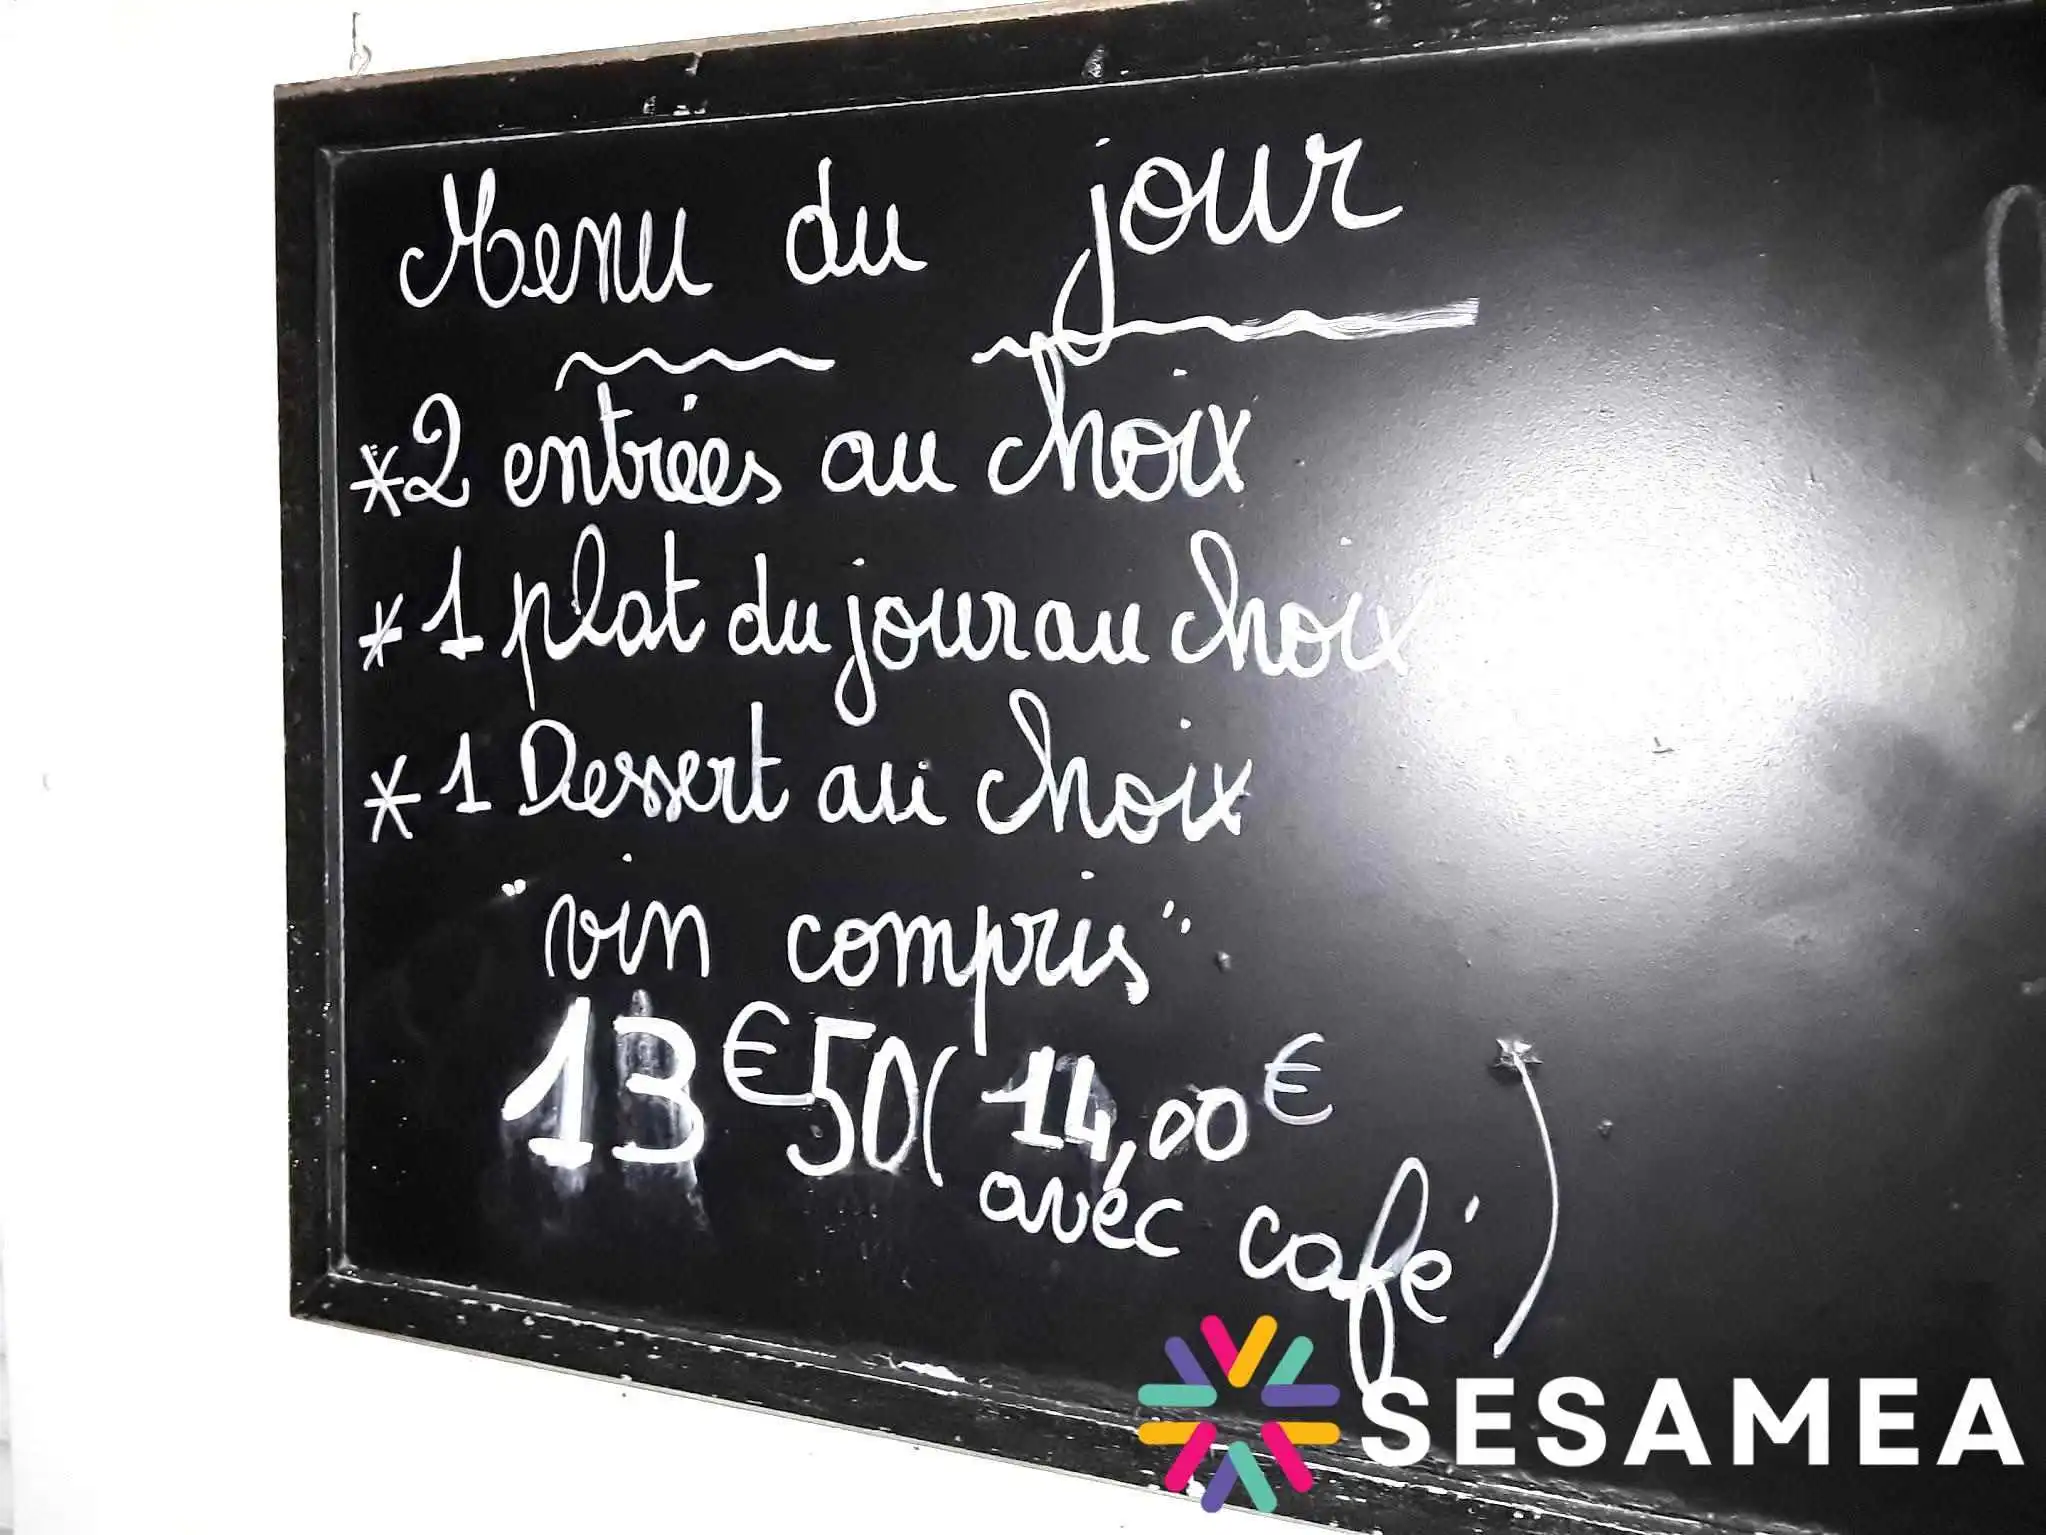 Menu du jour
*2 entrées au choix
*1 plat du jour au choix
*1 Dessert au choix
"vin compris"
13€50 (14,00€
avec café)
SESAMEA